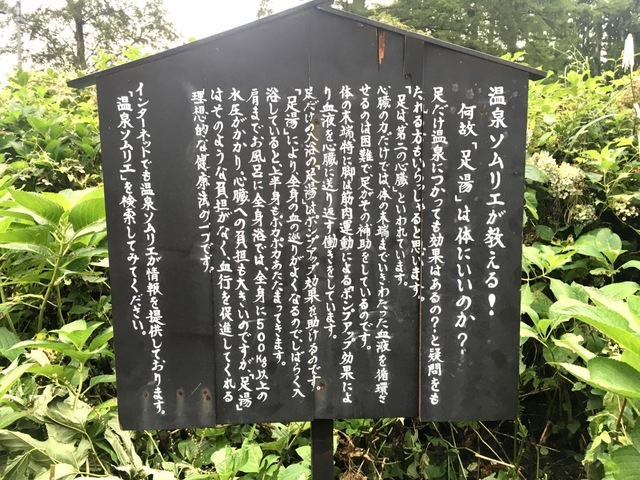 温泉ソムリエが教える!
何故「足湯」は体にいいのか?
足だけ温泉につかっても効果はあるの?と疑問をも
たれる方もいらっしゃると思います。
「足は第二の心臓」といわれています。
心臓の力だけでは体の末端までいきわたった血液を循環さ
せるのは困難で足がその補助をしているのです。
体の末端特に脚は筋肉運動によるポンプアップ効果によ
り血液を心臓に送り返す働きをしています。
足だけの入浴の足湯はポンプアップ効果を助けるのです。
「足湯」により全身の血の巡りがよくなるのでしばらく入
浴していると上半身もポカポカあたたまってきます。
肩までお風呂に全身浴では全身に500Kg以上の
水圧がかかり心臓への負担も大きいのですが「足湯」
はそのような負担がなく血行を促進してくれる
理想的な健康法の一つです。
インターネットでも温泉ソムリエが情報を提供しております。
「温泉ソムリエ」を検索してみてください。